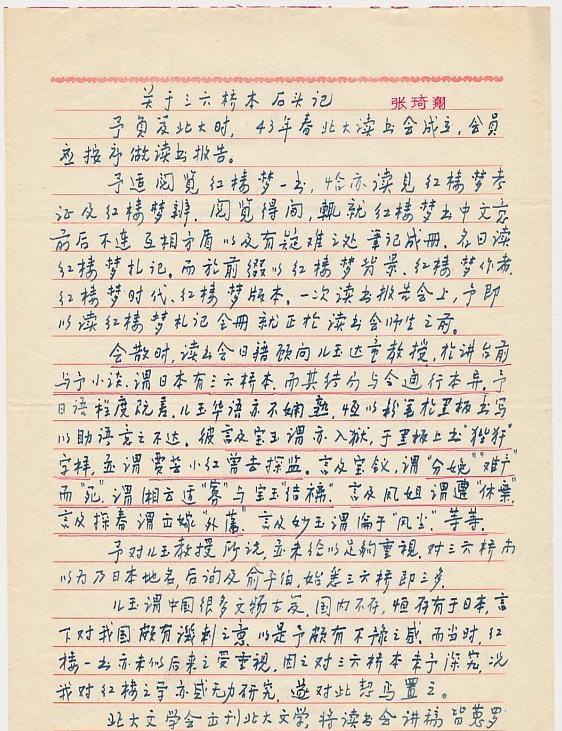 关于三六桥本石头记 张琦翔
予负笈北大时，43年春北大读书会成立，会员
应按序做读书报告。
予适阅览红楼梦一书，恰亦读见红楼梦考
证及红楼梦辨，阅览得间，辄就红楼梦书中文意
前后不连互相矛盾以及有疑难之处笔记成册，名曰读
红楼梦札记。而於前缀以红楼梦背景、红楼梦作者、
红楼梦时代、红楼梦版本。一次读书报告会上，予即
以读红楼梦札记全册就正於读书会师生之前。
会散时，读书会日籍顾问儿玉达童教授，於讲台前
与予小谈，谓日本有三六桥本，而其结局与今通行本异。予
日语程度既差，儿玉华语亦不娴熟，恒以粉笔於黑板书写
以助语言之不达。彼言及宝玉谓亦入狱，于黑板上书"狴犴"
字样，并谓贾芸小红曾去探监。言及宝钗，谓"分娩""难产"
而"死"，谓湘云适"寡"与宝玉"结褵"。言及凤姐谓遭"休弃"
言及探春谓出嫁"外藩"。言及妙玉谓沦于"风尘"，等等。
予对儿玉教授所说，并未给以足够重视，对三六桥本
以为乃日本地名，后询及俞子伯，始悉三六桥即三多。
儿玉谓中国很多文物古籍，国内不存，恒存有于日本，言
下对我国颇有讽刺之意，以是予颇有不豫之感，而当时，红
楼一书亦未似后来之受重视，因之对三六桥本未予深究，况
我对红楼之学亦感无力研究，遂对此恝焉置之。
北大文学会出刊北大文学，将读书会讲稿皆蒐罗